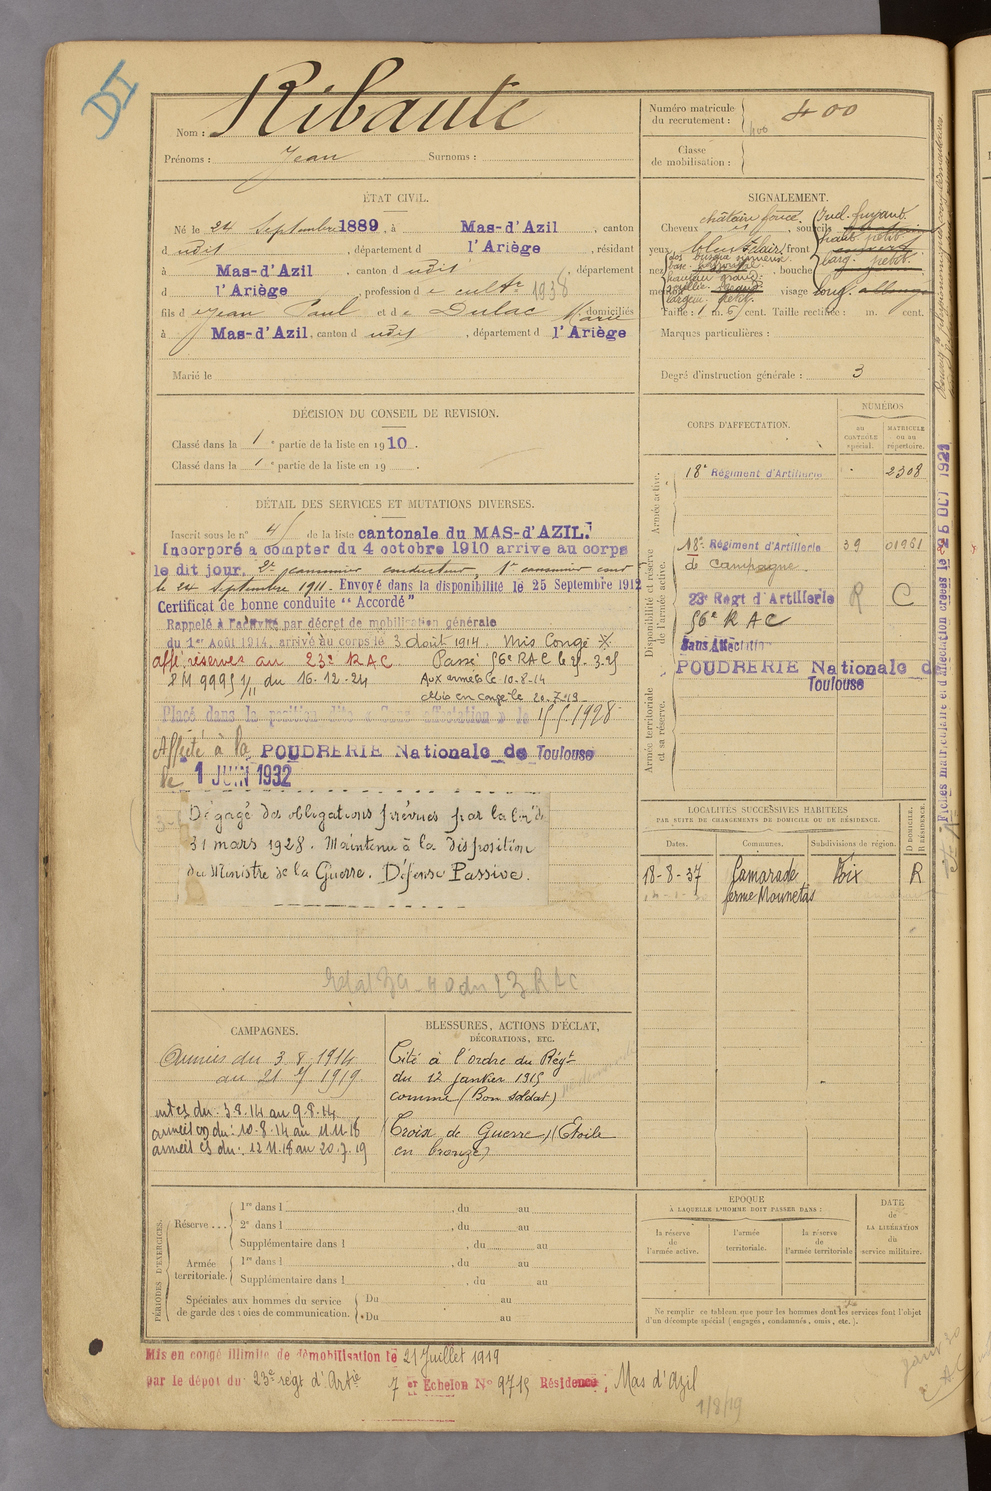 DI
Nom : Ribaute
Prénoms : Jean Surnoms :
Numéro matricule du recrutement : 400
400
Classe de mobilisation :
ÉTAT CIVIL.
Né le 24 Septembre 1889, à Mas-d'Azil, canton
d udit, département d l'Ariège, résidant
à Mas-d'Azil, canton d udit, département
d l'Ariège, profession d e cultr 1938
fils d e Jean Paul et d e Dulac Marie domiciliés
à Mas-d'Azil, canton d udit, département d l'Ariège
Marié le
SIGNALEMENT.
Cheveux châtain foncé, sourcils
yeux bleus clairs front
nez , bouche
visage long. allongé
Incl. fuyant
haut. petit
larg. petit
dos busqué
base
hauteur grand
saillie
largeur petit
Taille : 1 m. cent. Taille rectifiée : m. cent.
Marques particulières :
Degré d'instruction générale : 3
DÉCISION DU CONSEIL DE REVISION.
Classé dans la 1e partie de la liste en 1910.
Classé dans la 1e partie de la liste en 19 .
CORPS D'AFFECTATION.
NUMÉROS
au CONTRÔLE spécial.
MATRICULE ou au répertoire.
Armée active.
18e Régiment d'Artillerie 2308
Disponibilité et réserve de l'armée active.
18e Régiment d'Artillerie 39 01961
de Campagne.
23e Régt d'Artillerie R C
56e R A C
Sans Affectation
POUDRERIE Nationale de
Toulouse
Armée territoriale et sa réserve.
DÉTAIL DES SERVICES ET MUTATIONS DIVERSES.
Inscrit sous le n° de la liste cantonale du MAS-d'AZIL.
Incorporé a compter du 4 octobre 1910 arrive au corps
le dit jour. 2e canonnier conducteur, 1er canonnier cond
le 24 Septembre 1911. Envoyé dans la disponibilité le 25 Septembre 1912
Certificat de bonne conduite “ Accordé ”
Rappelé à l'activité par décret de mobilisation générale
du 1er Août 1914, arrivé au corps le 3 août 1914. Mis Congé X
affe. réserves au 23e RAC Passé 56e RAC le
P M 9995 1/11 du 16.12.24 Aux armées le 10-8-14
Mis en congé le 20.7.19
Placé dans la position dite « Sans affectation » le 1928
Affecté à la POUDRERIE Nationale de Toulouse
le 1 JUIN 1932
Dégagé des obligations prévues par la loi de
31 mars 1928. Maintenu à la disposition
du Ministre de la Guerre. Défense Passive.
Fiches matriculaire et d'Affectation créées le 26 OCT 1921
LOCALITÉS SUCCESSIVES HABITÉES
PAR SUITE DE CHANGEMENTS DE DOMICILE OU DE RÉSIDENCE.
Dates. Communes. Subdivisions de région. D DOMICILE. R RÉSIDENCE.
18-8-37 Camarade Foix R
ferme Mounetas
CAMPAGNES.
Armées du 3 8 1914
au 21 1919
intes du : 3.8.14 au 9.8.14
armées on du : 10.8.14 au 11.11.18
armées es du : 12.11.18 au 20.7.19
BLESSURES, ACTIONS D'ÉCLAT,
DÉCORATIONS, ETC.
Cité à l'ordre du Régt
du 12 janvier 1915
comme (Bon soldat)
Croix de Guerre (Étoile
en bronze)
PÉRIODES D'EXERCICES.
Réserve ...
1re dans l , du au
2e dans l , du au
Supplémentaire dans l , du au
Armée territoriale.
1re dans l , du au
Supplémentaire dans l , du au
Spéciales aux hommes du service de garde des voies de communication.
Du au
Du au
ÉPOQUE
À LAQUELLE L'HOMME DOIT PASSER DANS :
la réserve de l'armée active.
l'armée territoriale.
la réserve de l'armée territoriale
DATE de LA LIBÉRATION du service militaire.
Ne remplir ce tableau que pour les hommes dont les services font l'objet
d'un décompte spécial (engagés, condamnés, omis, etc.).
Mis en congé illimité de démobilisation le 21 Juillet 1919
par le dépôt du 23e régt d'Artie 7 er Echelon N° 9715 Résidence, Mas d'Azil
1/8/19